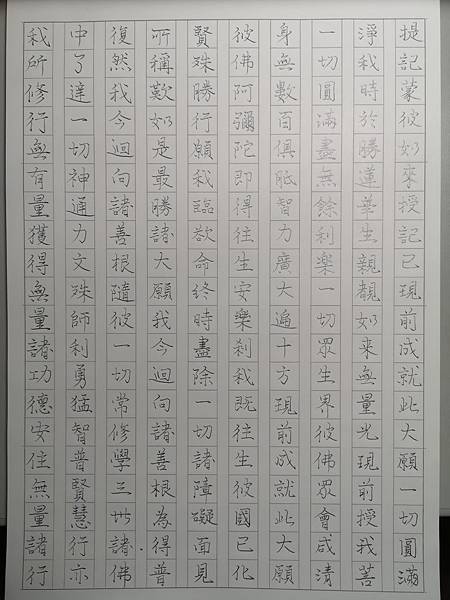 提記蒙彼如來授記已現前成就此大願一切圓滿
淨我時於勝蓮華生親覩如來無量光現前授我菩
一切圓滿盡無餘利樂一切眾生界彼佛眾會咸清
身無數百俱胝智力廣大遍十方現前成就此大願
彼佛阿彌陀即得往生安樂剎我既往生彼國已化
賢殊勝行願我臨欲命終時盡除一切諸障礙面見
所稱歎如是最勝諸大願我今迴向諸善根為得普
復然我今迴向諸善根隨彼一切常修學三世諸佛
中了達一切神通力文殊師利勇猛智普賢慧行亦
我所修行無有量獲得無量諸功德安住無量諸行